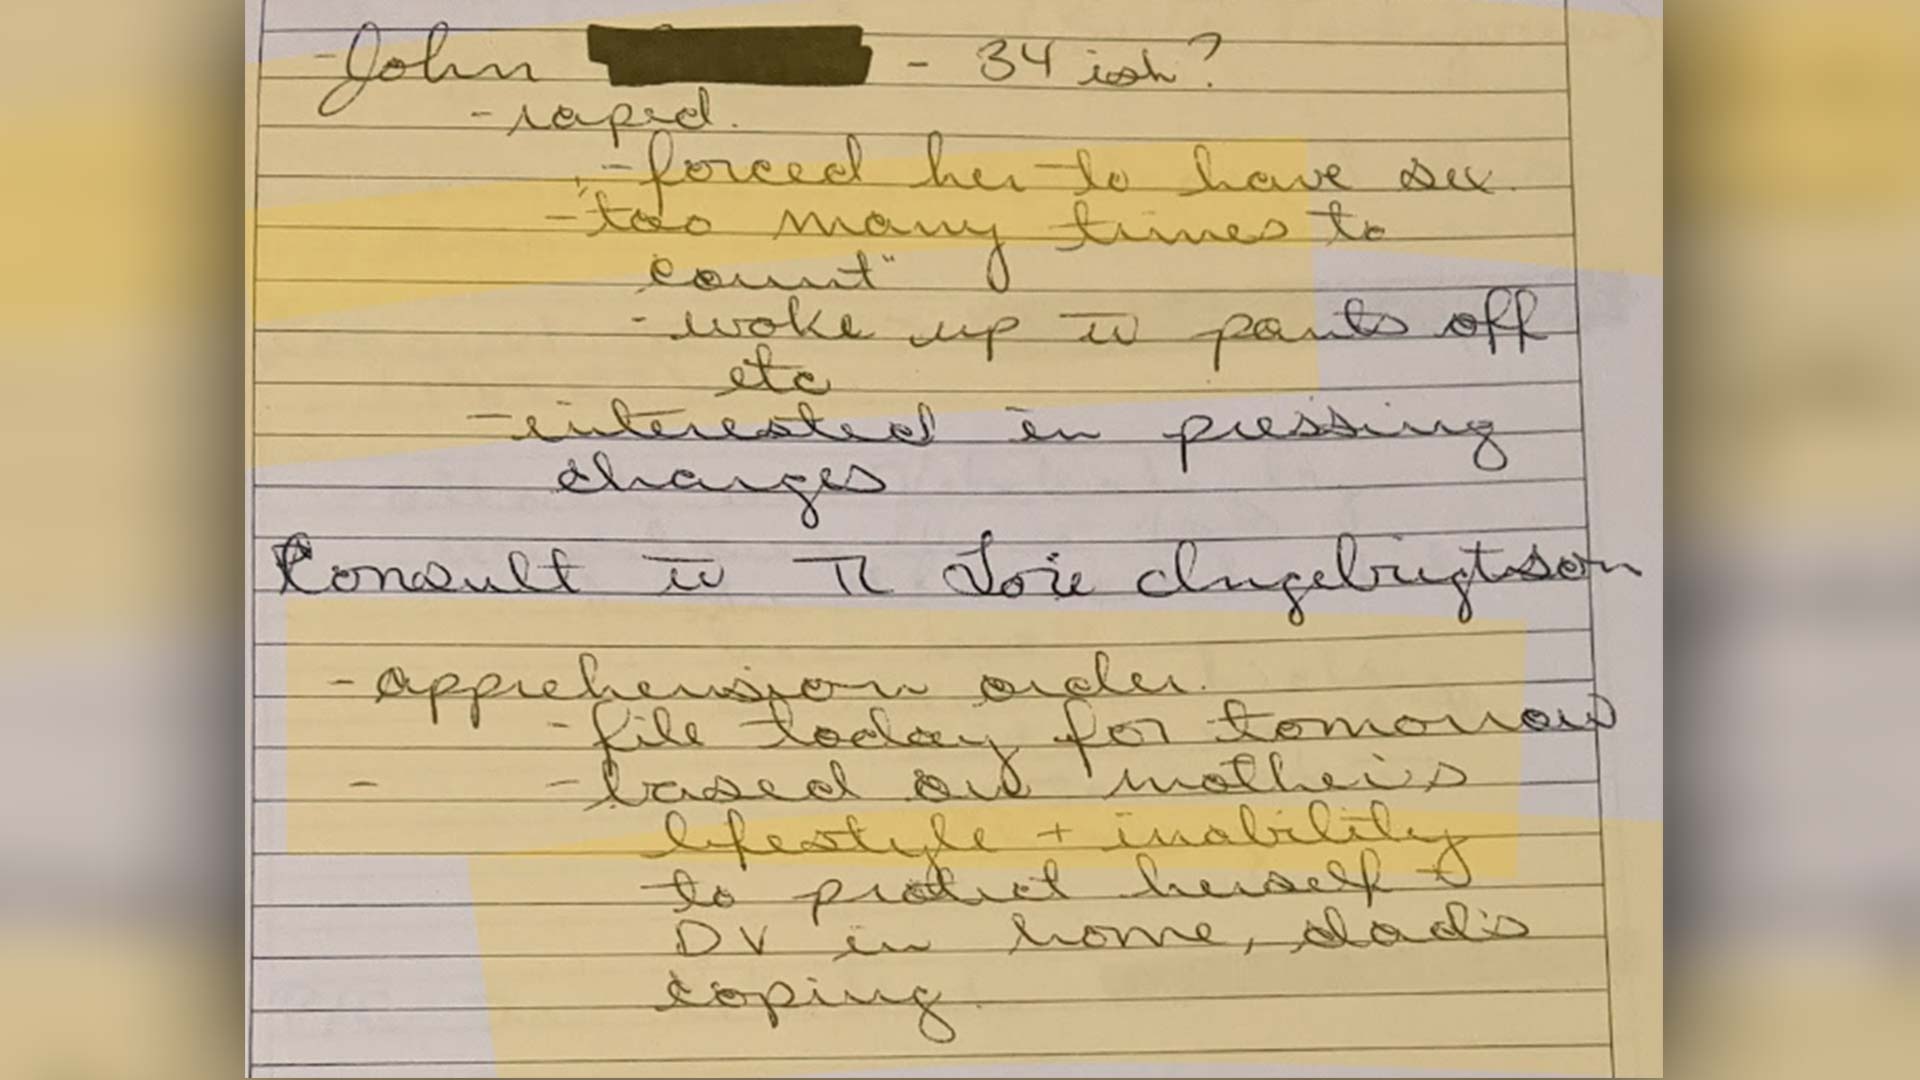 - John - 34 ish?
- raped.
- forced her to have sex.
- "too many times to
count"
- woke up w pants off
etc
- interested in pressing
charges
Consult w TL Lorie Angebrigtson
- apprehension order.
- file today for tomorrow
- - based on mother's
lifestyle + inability
to protect herself +
DV in home, dad's
coping.